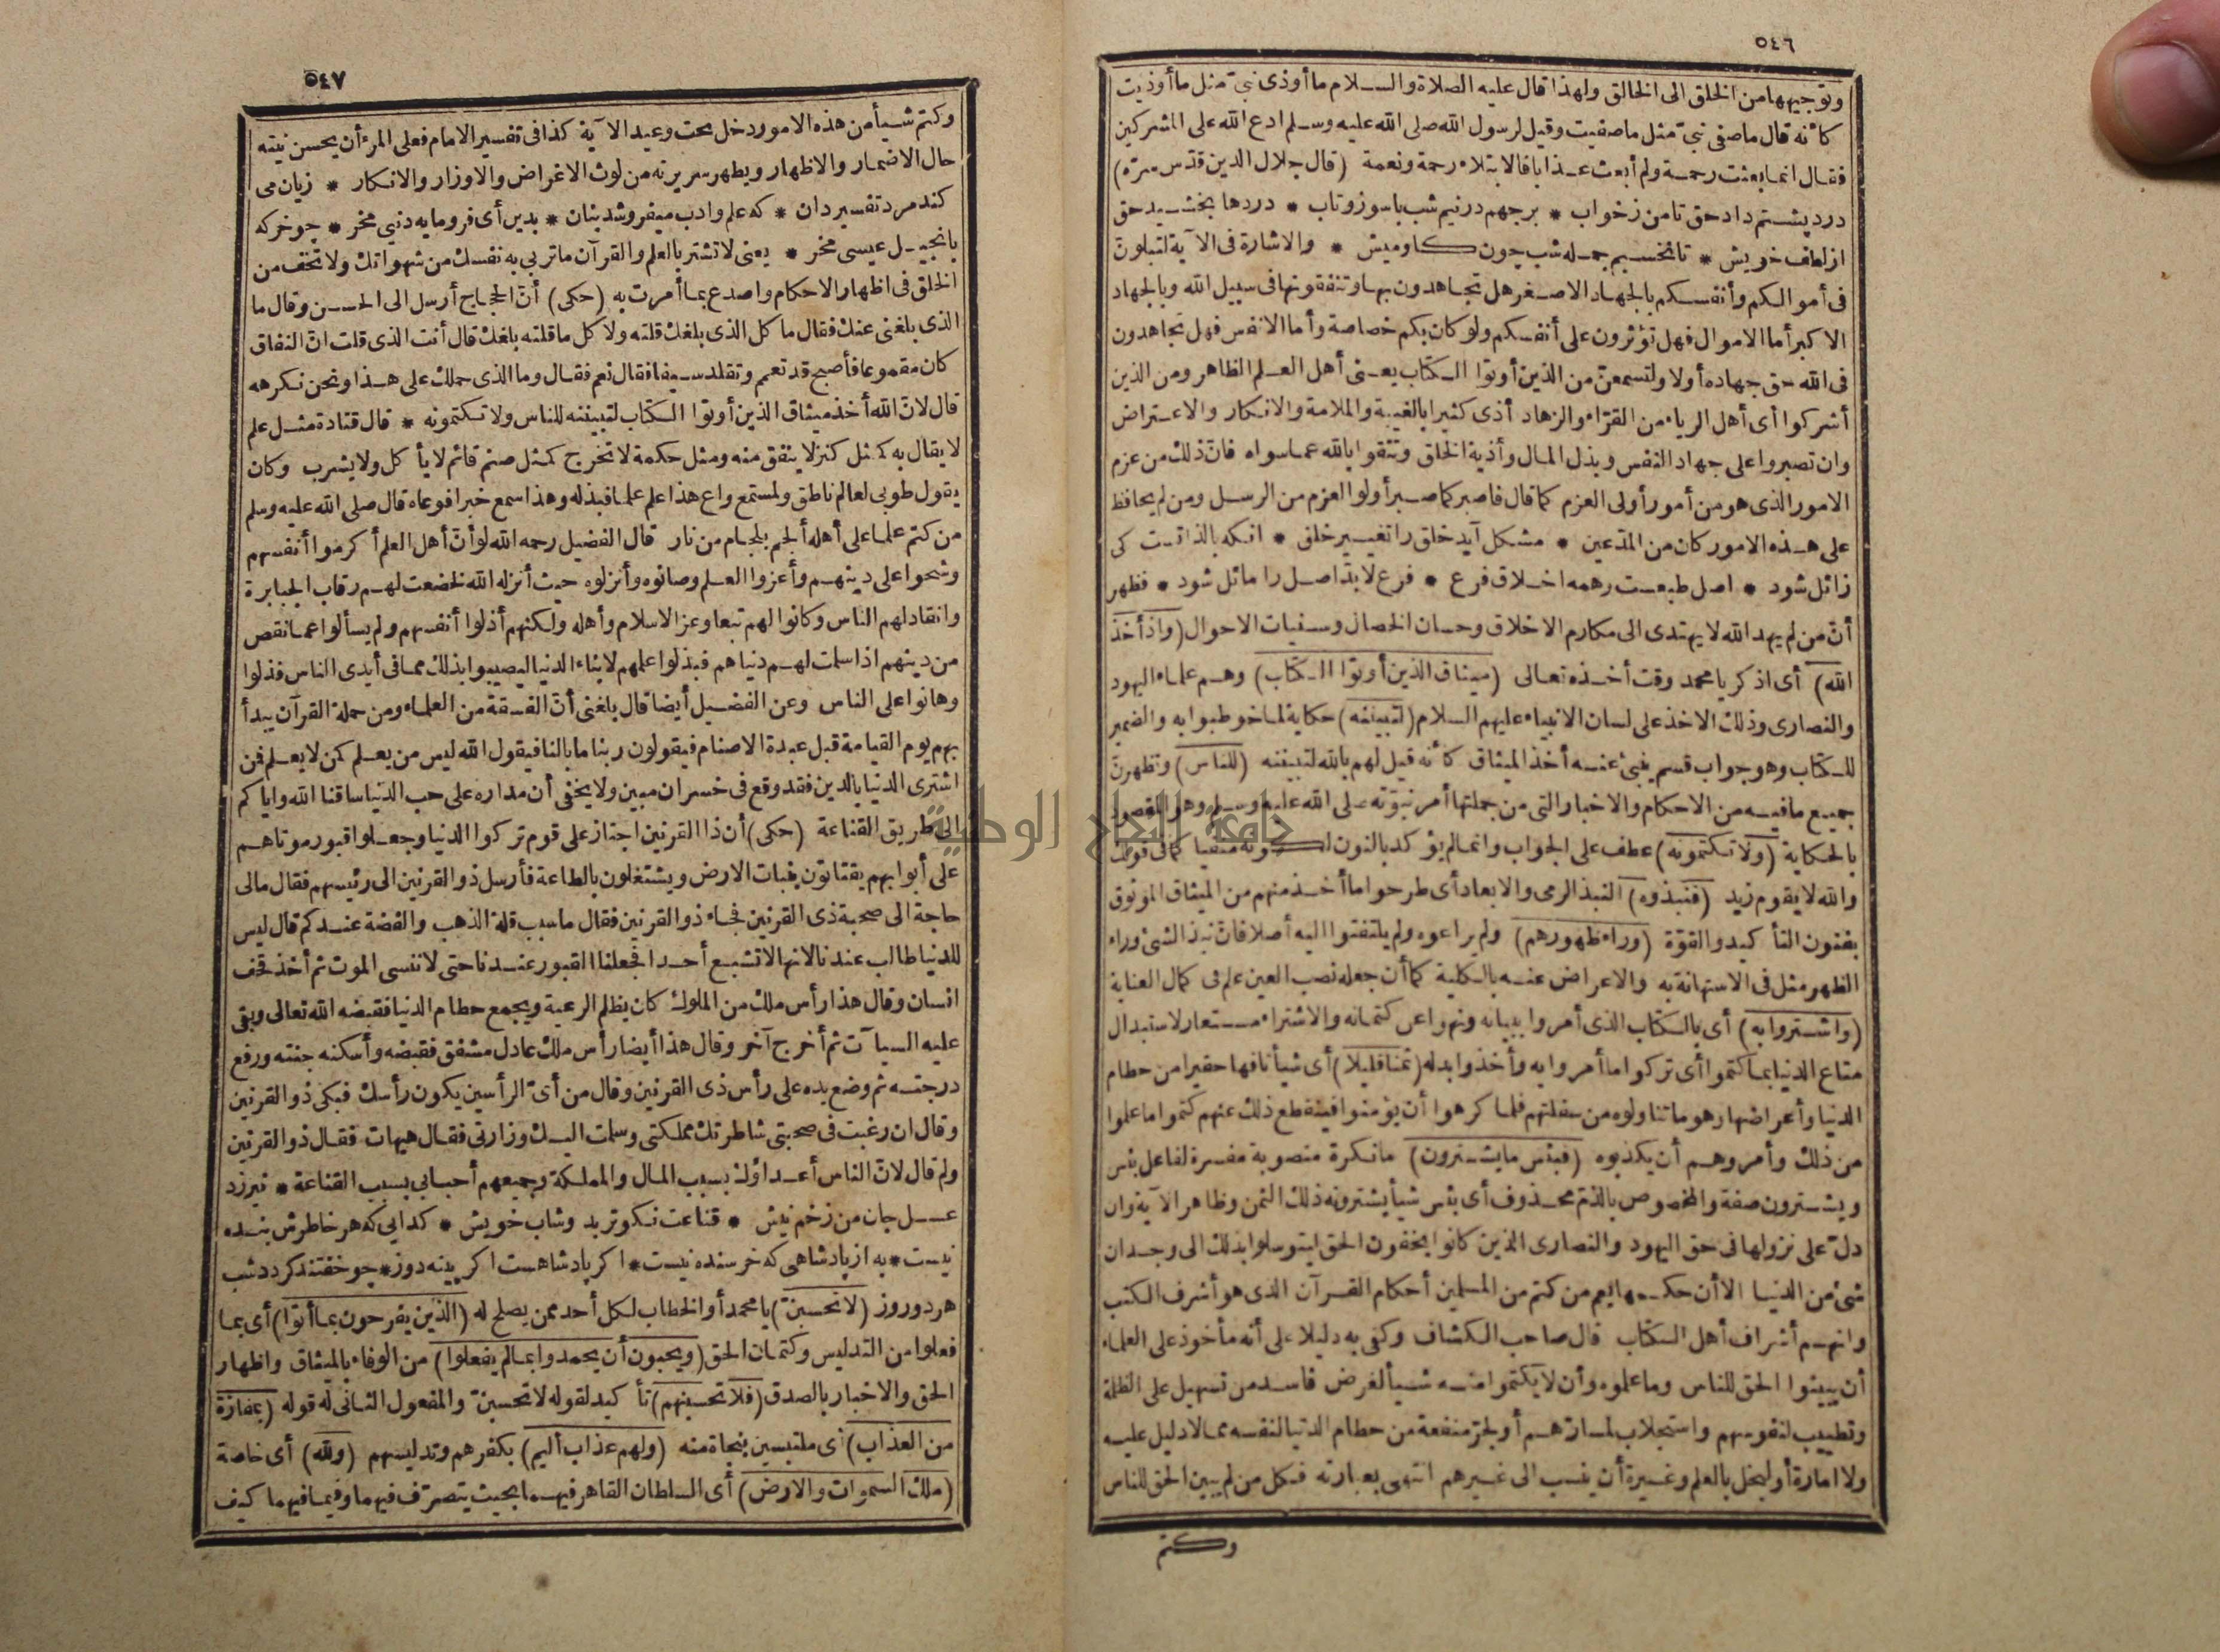 ٥٤٦
وتوجيهها من الخلق الى الخالق ولهذا قال عليه الصلاة والسلام ما أوذى نبىّ مثل ما أوذيت
كأنه قال ما صفى نبىّ مثل ما صفيت وقيل لرسول الله صلى الله عليه وسلم ادع الله على المشركين
فقال انما بعثت رحمة ولم أبعث عذابا فالابتلاء رحمة ونعمة (قال جلال الدين قدّس سرّه)
درد پشتم داد حق تا من زخواب * بر جهم در نيم شب با سوز وتاب * دردها بخشيد حق
از لطف خويش * تا نخسبم جمله شب چون كاوميش * والاشارة فى الآية لتبلونّ
فى أموالكم وأنفسكم بالجهاد الاصغر هل تجاهدون بها وتنفقونها فى سبيل الله وبالجهاد
الاكبر أما الاموال فهل تؤثرون على أنفسكم ولو كان بكم خصاصة وأما الانفس فهل تجاهدون
فى الله حق جهاده أولا ولتسمعنّ من الذين أوتوا الكتاب يعنى أهل العلم الظاهر ومن الذين
أشركوا أى أهل الرياء من القرّاء والزهاد أذى كثيرا بالغيبة والملامة والانكار والاعتراض
وان تصبروا على جهاد النفس وبذل المال وأذية الخلق وتتقوا بالله عما سواه فانّ ذلك من عزم
الامور الذى هو من أمور أولى العزم كما قال فاصبر كما صبر أولوا العزم من الرسل ومن لم يحافظ
على هذه الامور كان من المدّعين * مشكل آيد خلق را تغيير خلق * انكه بالذاتست كى
زائل شود * اصل طبعست وهمه اخلاق فرع * فرع لابدّ اصل را مائل شود * فظهر
أنّ من لم يهد الله لا يهتدى الى مكارم الاخلاق وحسان الخصال وسنيات الاحوال (واذ أخذ
الله) أى اذكر يا محمد وقت أخذه تعالى (ميثاق الذين أوتوا الكتاب) وهم علماء اليهود
والنصارى وذلك الاخذ على لسان الانبياء عليهم السلام (لتبيننه) حكاية لما خوطبوا به والضمير
للكتاب وهو جواب قسم ينبئ عنه أخذ الميثاق كأنه قيل لهم بالله لتبيننه (للناس) وتظهرنّ
جميع ما فيه من الاحكام والاخبار التى من جملتها أمر نبوّته صلى الله عليه وسلم وهو المقصود
بالحكاية (ولا تكتمونه) عطف على الجواب وانما لم يؤكد بالنون لكونه منفيا كما فى قولك
والله لا يقوم زيد (فنبذوه) النبذ الرمى والابعاد أى طرحوا ما أخذ منهم من الميثاق الموثوق
بفنون التأكيد والقوّة (وراء ظهورهم) ولم يراعوه ولم يلتفتوا اليه أصلا فانّ نبذ الشئ وراء
الظهر مثل فى الاستهانة به والاعراض عنه بالكلية كما أن جعله نصب العين علم فى كمال العناية
(واشتروا به) أى بالكتاب الذى أمروا ببيانه ونهوا عن كتمانه والاشتراء مستعار لاستبدال
متاع الدنيا بما كتموا أى تركوا ما أمروا به وأخذوا بدله (ثمنا قليلا) أى شيأ تافها حقيرا من حطام
الدنيا وأعراضها وهو ما تناولوه من سفلتهم فلما كرهوا أن يؤمنوا فينقطع ذلك عنهم كتموا ما علموا
من ذلك وأمروهم أن يكذبوه (فبئس ما يشترون) ما نكرة منصوبة مفسرة لفاعل بئس
ويشترون صفة والمخصوص بالذمّ محذوف أى بئس شيأ يشترونه ذلك الثمن وظاهر الآية وان
دلّ على نزولها فى حق اليهود والنصارى الذين كانوا يخفون الحق ليتوسلوا بذلك الى وجدان
شئ من الدنيا الا أن حكمها يعم من كتم من المسلمين أحكام القرآن الذى هو أشرف الكتب
وانهم أشراف أهل الكتاب قال صاحب الكشاف وكفى به دليلا على أنه مأخوذ على العلماء
أن يبينوا الحق للناس وما علموه وأن لا يكتموا منه شيأ لغرض فاسد من تسهيل على الظلمة
وتطييب لنفوسهم واستجلاب لمسارّهم أو لجرّ منفعة من حطام الدنيا لنفسه مما لا دليل عليه
ولا امارة أو لبخل بالعلم وغيرة أن ينسب الى غيرهم انتهى بعبارته فكل من لم يبين الحق للناس
وكتم
٥٤٧
وكتم شيأ من هذه الامور دخل تحت وعيد الآية كذا فى تفسير الامام فعلى المرء أن يحسن نيته
حال الاضمار والاظهار ويطهر سريرته من لوث الاغراض والاوزار والانكار * زيان مى
كند مرد تفسير دان * كه علم وادب ميفروشد بنان * بدين أى فرومايه دنيى مخر * جو خركه
بانجيل عيسى مخر * يعنى لا تشتر بالعلم والقرآن ما تربى به نفسك من شهواتك ولا تخف من
الخلق فى اظهار الاحكام واصدع بما أمرت به (حكى) أنّ الحجاج أرسل الى الحسن وقال ما
الذى بلغنى عنك فقال ما كل الذى بلغك قلته ولا كل ما قلته بلغك قال أنت الذى قلت انّ النفاق
كان مقموعا فأصبح قد تعمم وتقلد سيفا فقال نعم فقال وما الذى حملك على هذا ونحن نكرهه
قال لانّ الله أخذ ميثاق الذين أوتوا الكتاب لتبيننه للناس ولا تكتمونه * قال قتادة مثل علم
لا يقال به كمثل كنز لا ينفق منه ومثل حكمة لا تخرج كمثل صنم قائم لا يأكل ولا يشرب وكان
يقول طوبى لعالم ناطق ولمستمع واع هذا علم علما فبذله وهذا سمع خبرا فوعاه قال صلى الله عليه وسلم
من كتم علما على أهله ألجم بلجام من نار قال الفضيل رحمه الله لو أنّ أهل العلم أكرموا أنفسهم
وشحوا على دينهم وأعزوا العلم وصانوه وأنزلوه حيث أنزله الله لخضعت لهم رقاب الجبابرة
وانقاد لهم الناس وكانوا لهم تبعا وعز الاسلام وأهله ولكنهم أذلوا أنفسهم ولم يسألوا عما نقص
من دينهم اذا سلمت لهم دنياهم فبذلوا علمهم لابناء الدنيا ليصيبوا بذلك مما فى أيدى الناس فذلوا
وهانوا على الناس وعن الفضيل أيضا قال بلغنى أنّ الفسقة من العلماء ومن حملة القرآن يبدأ
بهم يوم القيامة قبل عبدة الاصنام فيقولون ربنا ما بالنا فيقول الله ليس من يعلم كمن لا يعلم فمن
اشترى الدنيا بالدين فقد وقع فى خسران مبين ولا يخفى أن مداره على حب الدنيا ساقنا الله واياكم
الى طريق القناعة (حكى) أن ذا القرنين اجتاز على قوم تركوا الدنيا وجعلوا قبور موتاهم
على أبوابهم يقتاتون بنبات الارض ويشتغلون بالطاعة فأرسل ذو القرنين الى رئيسهم فقال مالى
حاجة الى صحبة ذى القرنين فجاء ذو القرنين فقال ما سبب قلة الذهب والفضة عندكم قال ليس
للدنيا طالب عندنا لانها لا تشبع أحدا فجعلنا القبور عندنا حتى لا ننسى الموت ثم أخذ قحف
انسان وقال هذا رأس ملك من الملوك كان يظلم الرعية ويجمع حطام الدنيا فقبضه الله تعالى وبقى
عليه السيآت ثم أخرج آخر وقال هذا أيضا رأس ملك عادل مشفق فقبضه وأسكنه جنته ورفع
درجته ثم وضع يده على رأس ذى القرنين وقال من أىّ الرأسين يكون رأسك فبكى ذو القرنين
وقال ان رغبت فى صحبتى شاطرتك مملكتى وسلمت اليك وزارتى فقال هيهات فقال ذو القرنين
ولم قال لانّ الناس أعداؤك بسبب المال والمملكة وجميعهم أحبابى بسبب القناعة * نيرزد
عسل جان من زخم نيش * قناعت نكوتر بدوشاب خويش * كدايى كه هر خاطرش بند
نيست * به از پادشاهى كه خرسند نيست * اكر پادشاهست اكر پينه دوز * چو خفتند كردد شب
هر دو روز (لا تحسبنّ) يا محمد أو الخطاب لكل أحد ممن يصلح له (الذين يفرحون بما أتوا) أى بما
فعلوا من التدليس وكتمان الحق (ويحبون أن يحمدوا بما لم يفعلوا) من الوفاء بالميثاق واظهار
الحق والاخبار بالصدق (فلا تحسبنهم) تأكيد لقوله لا تحسبنّ والمفعول الثانى له قوله (بمفازة
من العذاب) أى ملتبسين بنجاة منه (ولهم عذاب أليم) بكفرهم وتدليسهم (ولله) أى خاصة
(ملك السموات والارض) أى السلطان القاهر فيهما بحيث يتصرّف فيهما وفيما فيهما كيف
جامعة النجاح الوطنية